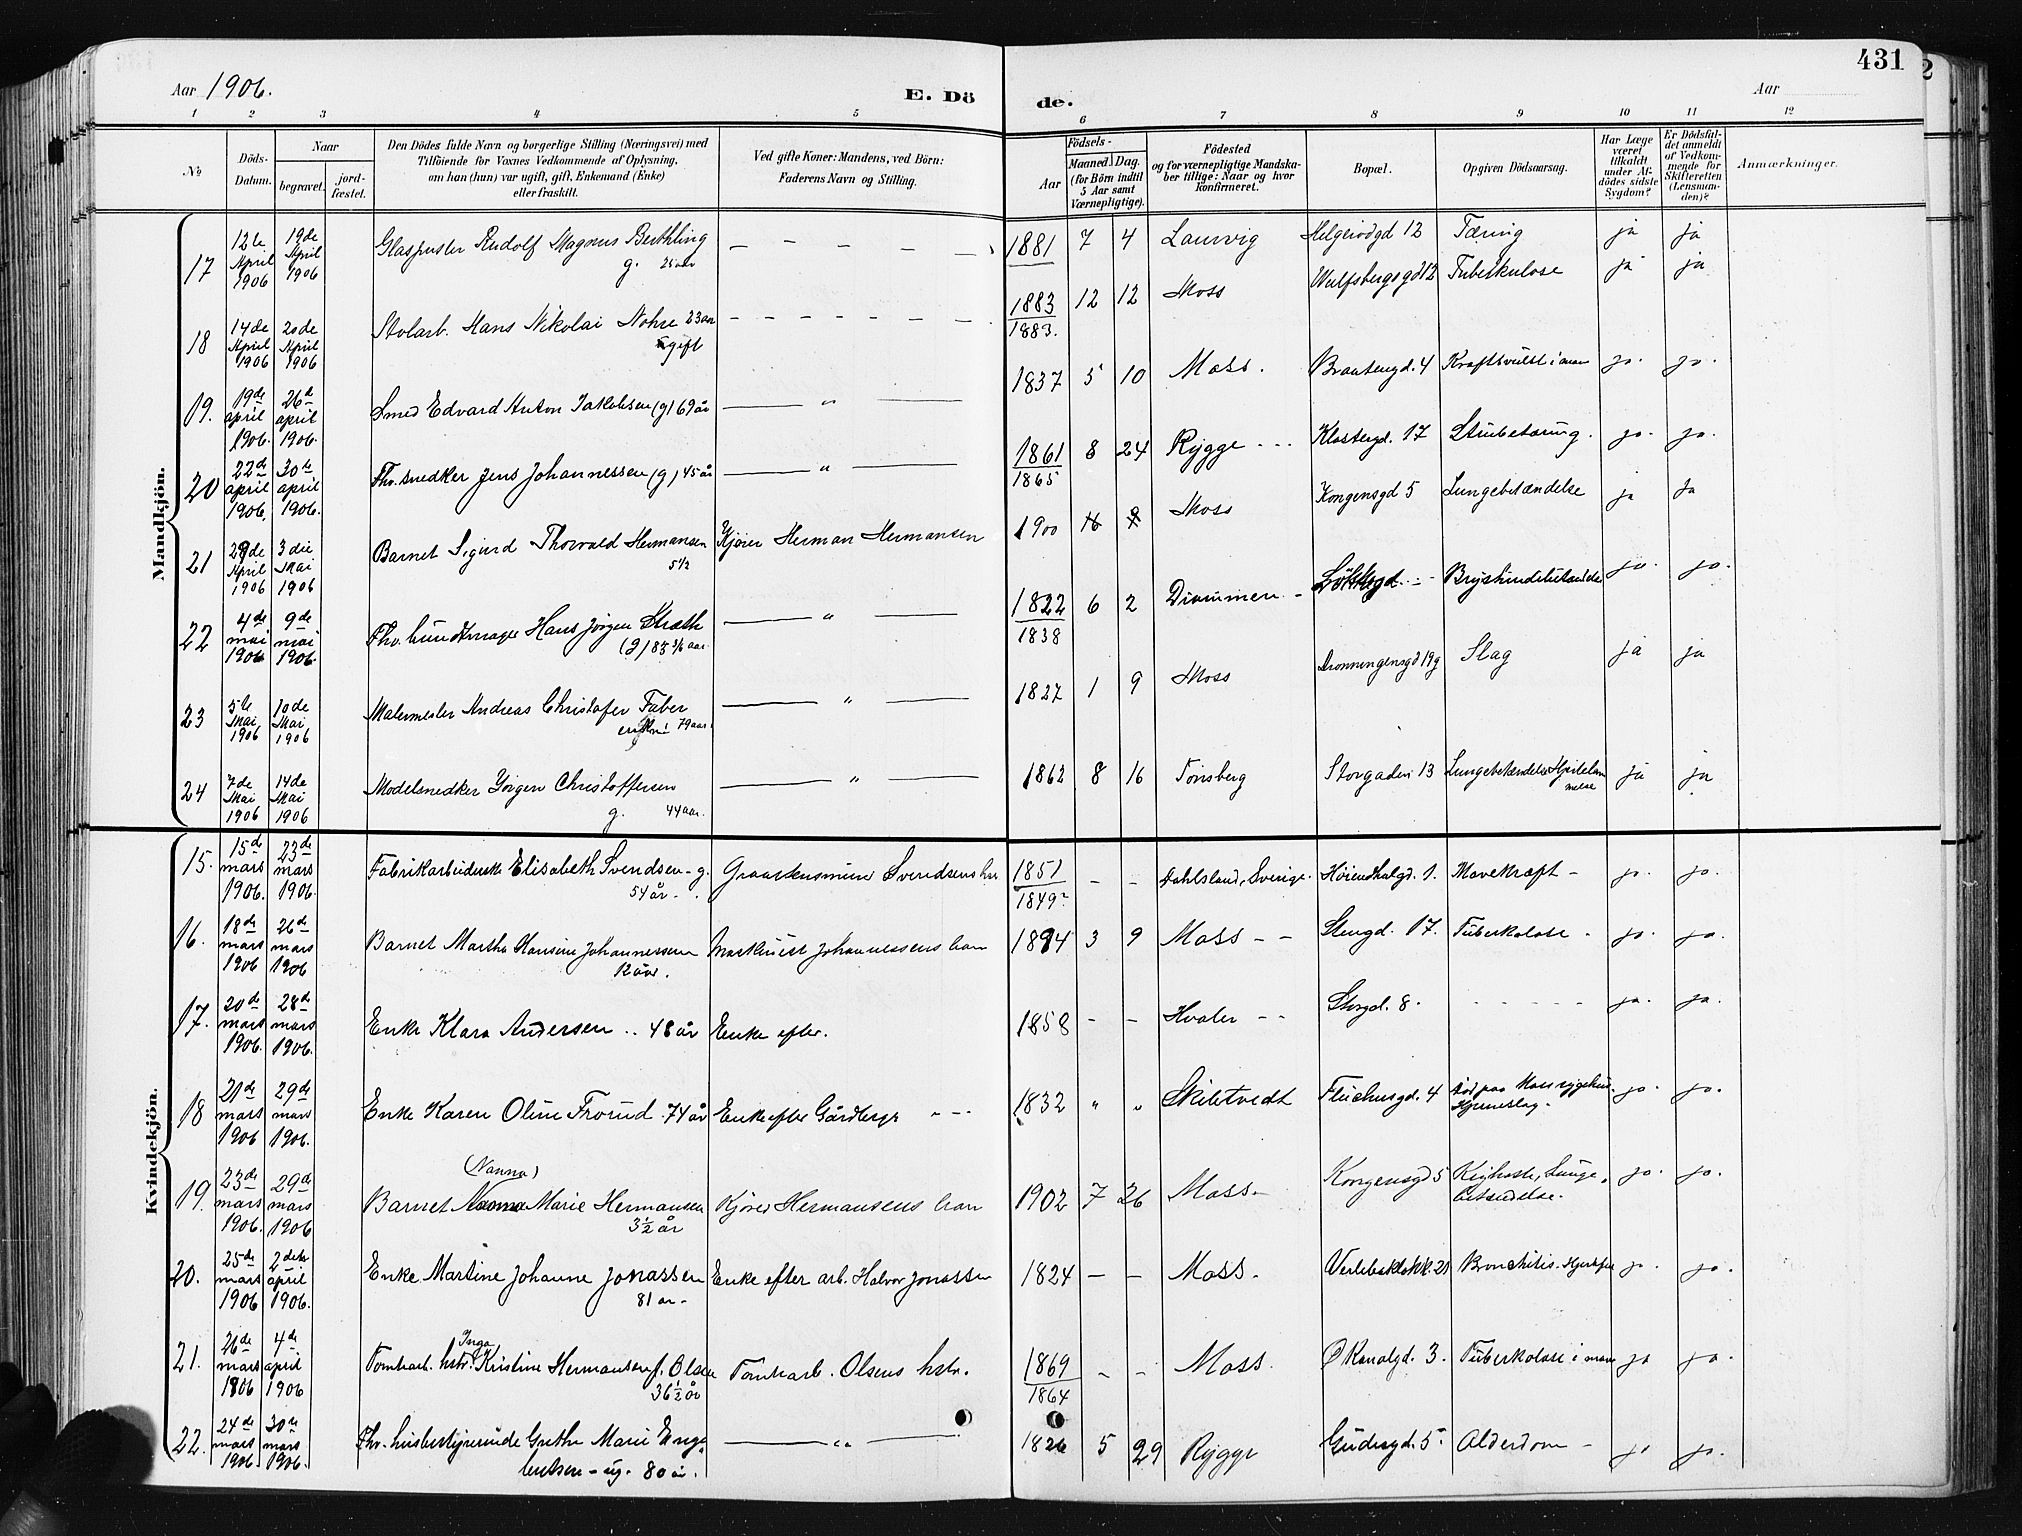 431
2
Aar 1906.
E. Dö
de.
Aar
1 2 3 4 5 6 7 8 9 10 11 12
№
Döds-
Datum.
Naar
begravet.
jord-
fæstet.
Den Dödes fulde Navn og borgerlige Stilling (Næringsvei) med
Tilföiende for Voxnes Vedkommende af Oplysning,
om han (hun) var ugift, gift, Enkemand (Enke)
eller fraskilt.
Ved gifte Koner: Mandens, ved Börn:
Faderens Navn og Stilling.
Födsels-
Aar
Maaned. Dag.
(for Börn indtil
5 Aar samt
Værnepligtige).
Födested
og for værnepligtige Mandska-
ber tillige: Naar og hvor
Konfirmeret.
Bopæl.
Opgiven Dödsaarsag.
Har Læge
været
tilkaldt
under Af-
dödes sidste
Sygdom?
Er Dödsfal-
det anmeldt
af Vedkom-
mende for
Skifteretten
(Lensman-
den)?
Anmærkninger.
Mandkjön.
17 12te April 1906 19de April 1906 Glaspuster Rudolf Magnus Berthling 1881 7 4 Laurvig Helgerödgd 12 Tæring ja ja
g. 25 aar
18 14de April 1906 20de April 1906 Stolarb. Hans Nikolai Nohre 23 aar 1883 12 12 Moss Wulfsbergsgd 12 Tuberkulose ja ja
ugift 1883.
19. 19de april 1906. 26de april 1906. Smed Edvard Anton Jakobsen (g) 69 år — " — 1837 5 10 Moss. Braatengd. 4 Kræftsvulst i ja. ja.
20 22de april 1906. 30te april 1906. Fhv. snedker Jens Johannessen (g) 45 år — " — 1861 8 24 Rygge Klostergd. 17 Strubetæring. ja. ja.
1865
21 28de April 1906 3die Mai 1906 Barnet Sigurd Thorvald Hermansen Kjører Herman Hermansen 1900 Moss Kongensgd 5 Lungebetændelse ja ja
5½
22 4de mai 1906 9de mai 1906. Fhv. bundtmager Hans Jørgen Strøth — " — 1822 6 2 Drammen Brysthindebetændelse ja. ja.
(g) 83 aar. 1838
23 5te Mai 1906 10de Mai 1906 Malermester Andreas Christofer Faber — " — 1827 1 9 Moss Dronningensgd 19 g Slag ja ja
79 aar.
24 7de Mai 1906 14de Mai 1906 Modelsnedker Jørgen Christoffersen — " — 1862 8 16 Tønsberg Storgaden 13 Lungebetændelse ja ja
g. 44 aar.
Kvindekjön.
15. 15de mars 1906. 23de mars 1906. Fabrikarbeiderske Elisabeth Svendsen - g. Svendsens 1851 - - Dahlsland, Sverige. Høienhalgd. 1. Mavekræft - ja. ja.
54 år - 1849?
16. 18de mars 1906 26de mars 1906 Barnet Martha Hansine Johannessen Maskinist Johannessens barn 1894 3 9 Moss - - Stengd. 17. Tuberkolose - ja. ja.
12 aar.
17. 20de mars 1906. 28de mars 1906. Enke Klara Andersen .. 48 år Enke efter. 1858 - - Hvaler - - Storgd. 8. - - - - - ja. ja.
18 21de mars 1906 29de mars 1906. Enke Karen Oline Frorud. 74 år Enke efter Gårdbrgr " - - 1832 " " Skibtvedt Fleichersgd. 4 Død paa Moss sygehus. Hjerneslag - ja. ja.
(Nanna)
19. 23de mars 1906. 29de mars 1906 Barnet Marie Hermansen Kjører Hermansens barn 1902 7 26 Moss - Kongensgd 5 Kighoste, Lungebetændelse. ja. ja.
3½ år
20. 25de mars 1906 2den april 1906. Enke Martine Johanne Jonassen Enke efter arb. Halvor Jonassen 1824 - - Moss. Verlebakken. 21 Bronchitis. ja. ja.
81 år -
Inga
21. 26de mars 1906 4de april 1906 Tomtearb. hstr. Kristine Hermansen f. Olsen Tomtearb. Olsens hstr. 1869 - - Moss. Ø Kanalgd. 3. Tuberkolose i ja ja.
36½ år 1864
22. 24de mars 1906. 30te mars 1906. Fhv. husbestyrerinde Grethe Marie Enge- — " — 1826 5 29 Rygge Gudesgd. 5 Alderdom - ja ja.
bretsen - ug. 80 år.